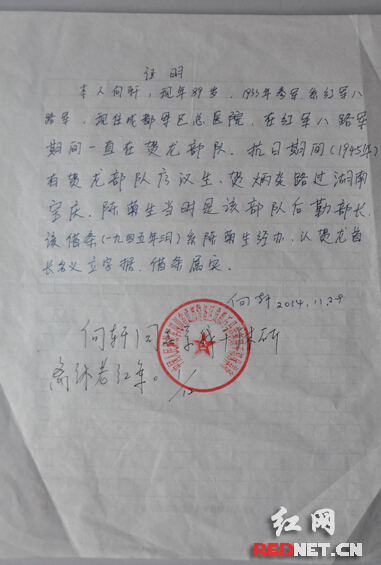 证明
本人向轩,现年89岁,1935年参军,系红军八
路军,现住成都军区总医院,在红军八路军
期间一直在贺龙部队。抗日期间(1945年)
有贺龙部队廖汉生、贺炳炎路过湖南
宝庆,陈菊生当时是该部队后勤部长,
该借条(一九四五年)系陈菊生经办,以贺龙首
长名义立字据,借条属实。
向轩 2014.11.29
向轩同
离休老红军。
1/12
红网
REDNET.CN